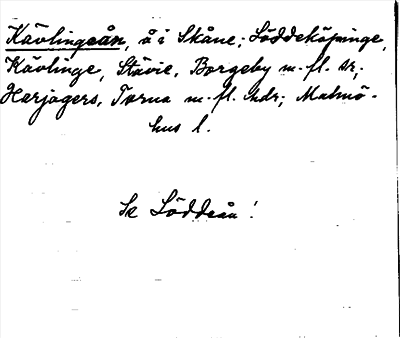 Kävlingeån, å i Skåne; Löddeköpinge,
Kävlinge, Stävie, Borgeby m. fl. sr;
Harjagers, Torna m. fl. hdr; Malmö-
hus l.
Se Löddeån!